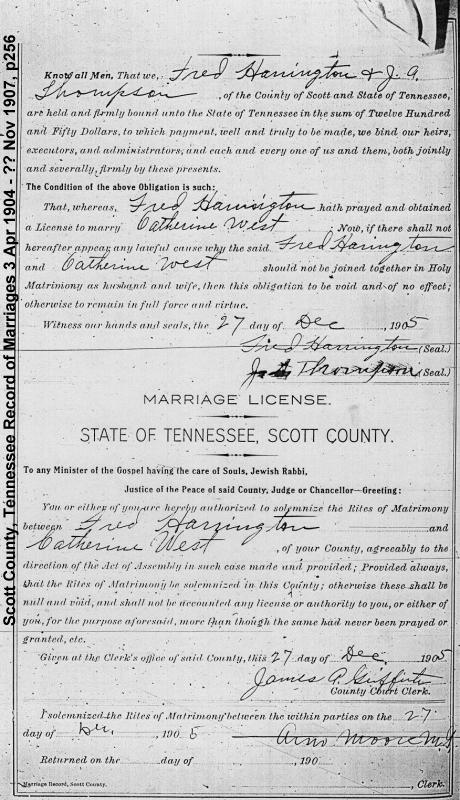 Scott County, Tennessee Record of Marriages 3 Apr 1904 - ?? Nov 1907, p256
Know all Men, That we, Fred Harrington & J. A.
Thompson, of the County of Scott and State of Tennessee,
are held and firmly bound unto the State of Tennessee in the sum of Twelve Hundred
and Fifty Dollars, to which payment, well and truly to be made, we bind our heirs,
executors, and administrators, and each and every one of us and them, both jointly
and severally, firmly by these presents.
The Condition of the above Obligation is such:
That, whereas, Fred Harrington hath prayed and obtained
a License to marry Catherine West Now, if there shall not
hereafter appear any lawful cause why the said Fred Harington
and Catherine West should not be joined together in Holy
Matrimony as husband and wife, then this obligation to be void and of no effect;
otherwise to remain in full force and virtue.
Witness our hands and seals, the 27 day of Dec, 1905
Fred Harrington (Seal.)
J. A. Thompson (Seal.)
MARRIAGE LICENSE.
STATE OF TENNESSEE, SCOTT COUNTY.
To any Minister of the Gospel having the care of Souls, Jewish Rabbi,
Justice of the Peace of said County, Judge or Chancellor—Greeting:
You or either of you are hereby authorized to solemnize the Rites of Matrimony
between Fred Harrington and
Catherine West, of your County, agreeably to the
direction of the Act of Assembly in such case made and provided; Provided always,
that the Rites of Matrimony be solemnized in this County; otherwise these shall be
null and void, and shall not be accounted any license or authority to you, or either of
you, for the purpose aforesaid, more than though the same had never been prayed or
granted, etc.
Given at the Clerk's office of said County, this 27 day of Dec. 1905
James A. Griffith
County Court Clerk.
I solemnized the Rites of Matrimony between the within parties on the 27
day of Dec, 1905 Moore
Returned on the day of , 190
Marriage Record, Scott County. , Clerk.